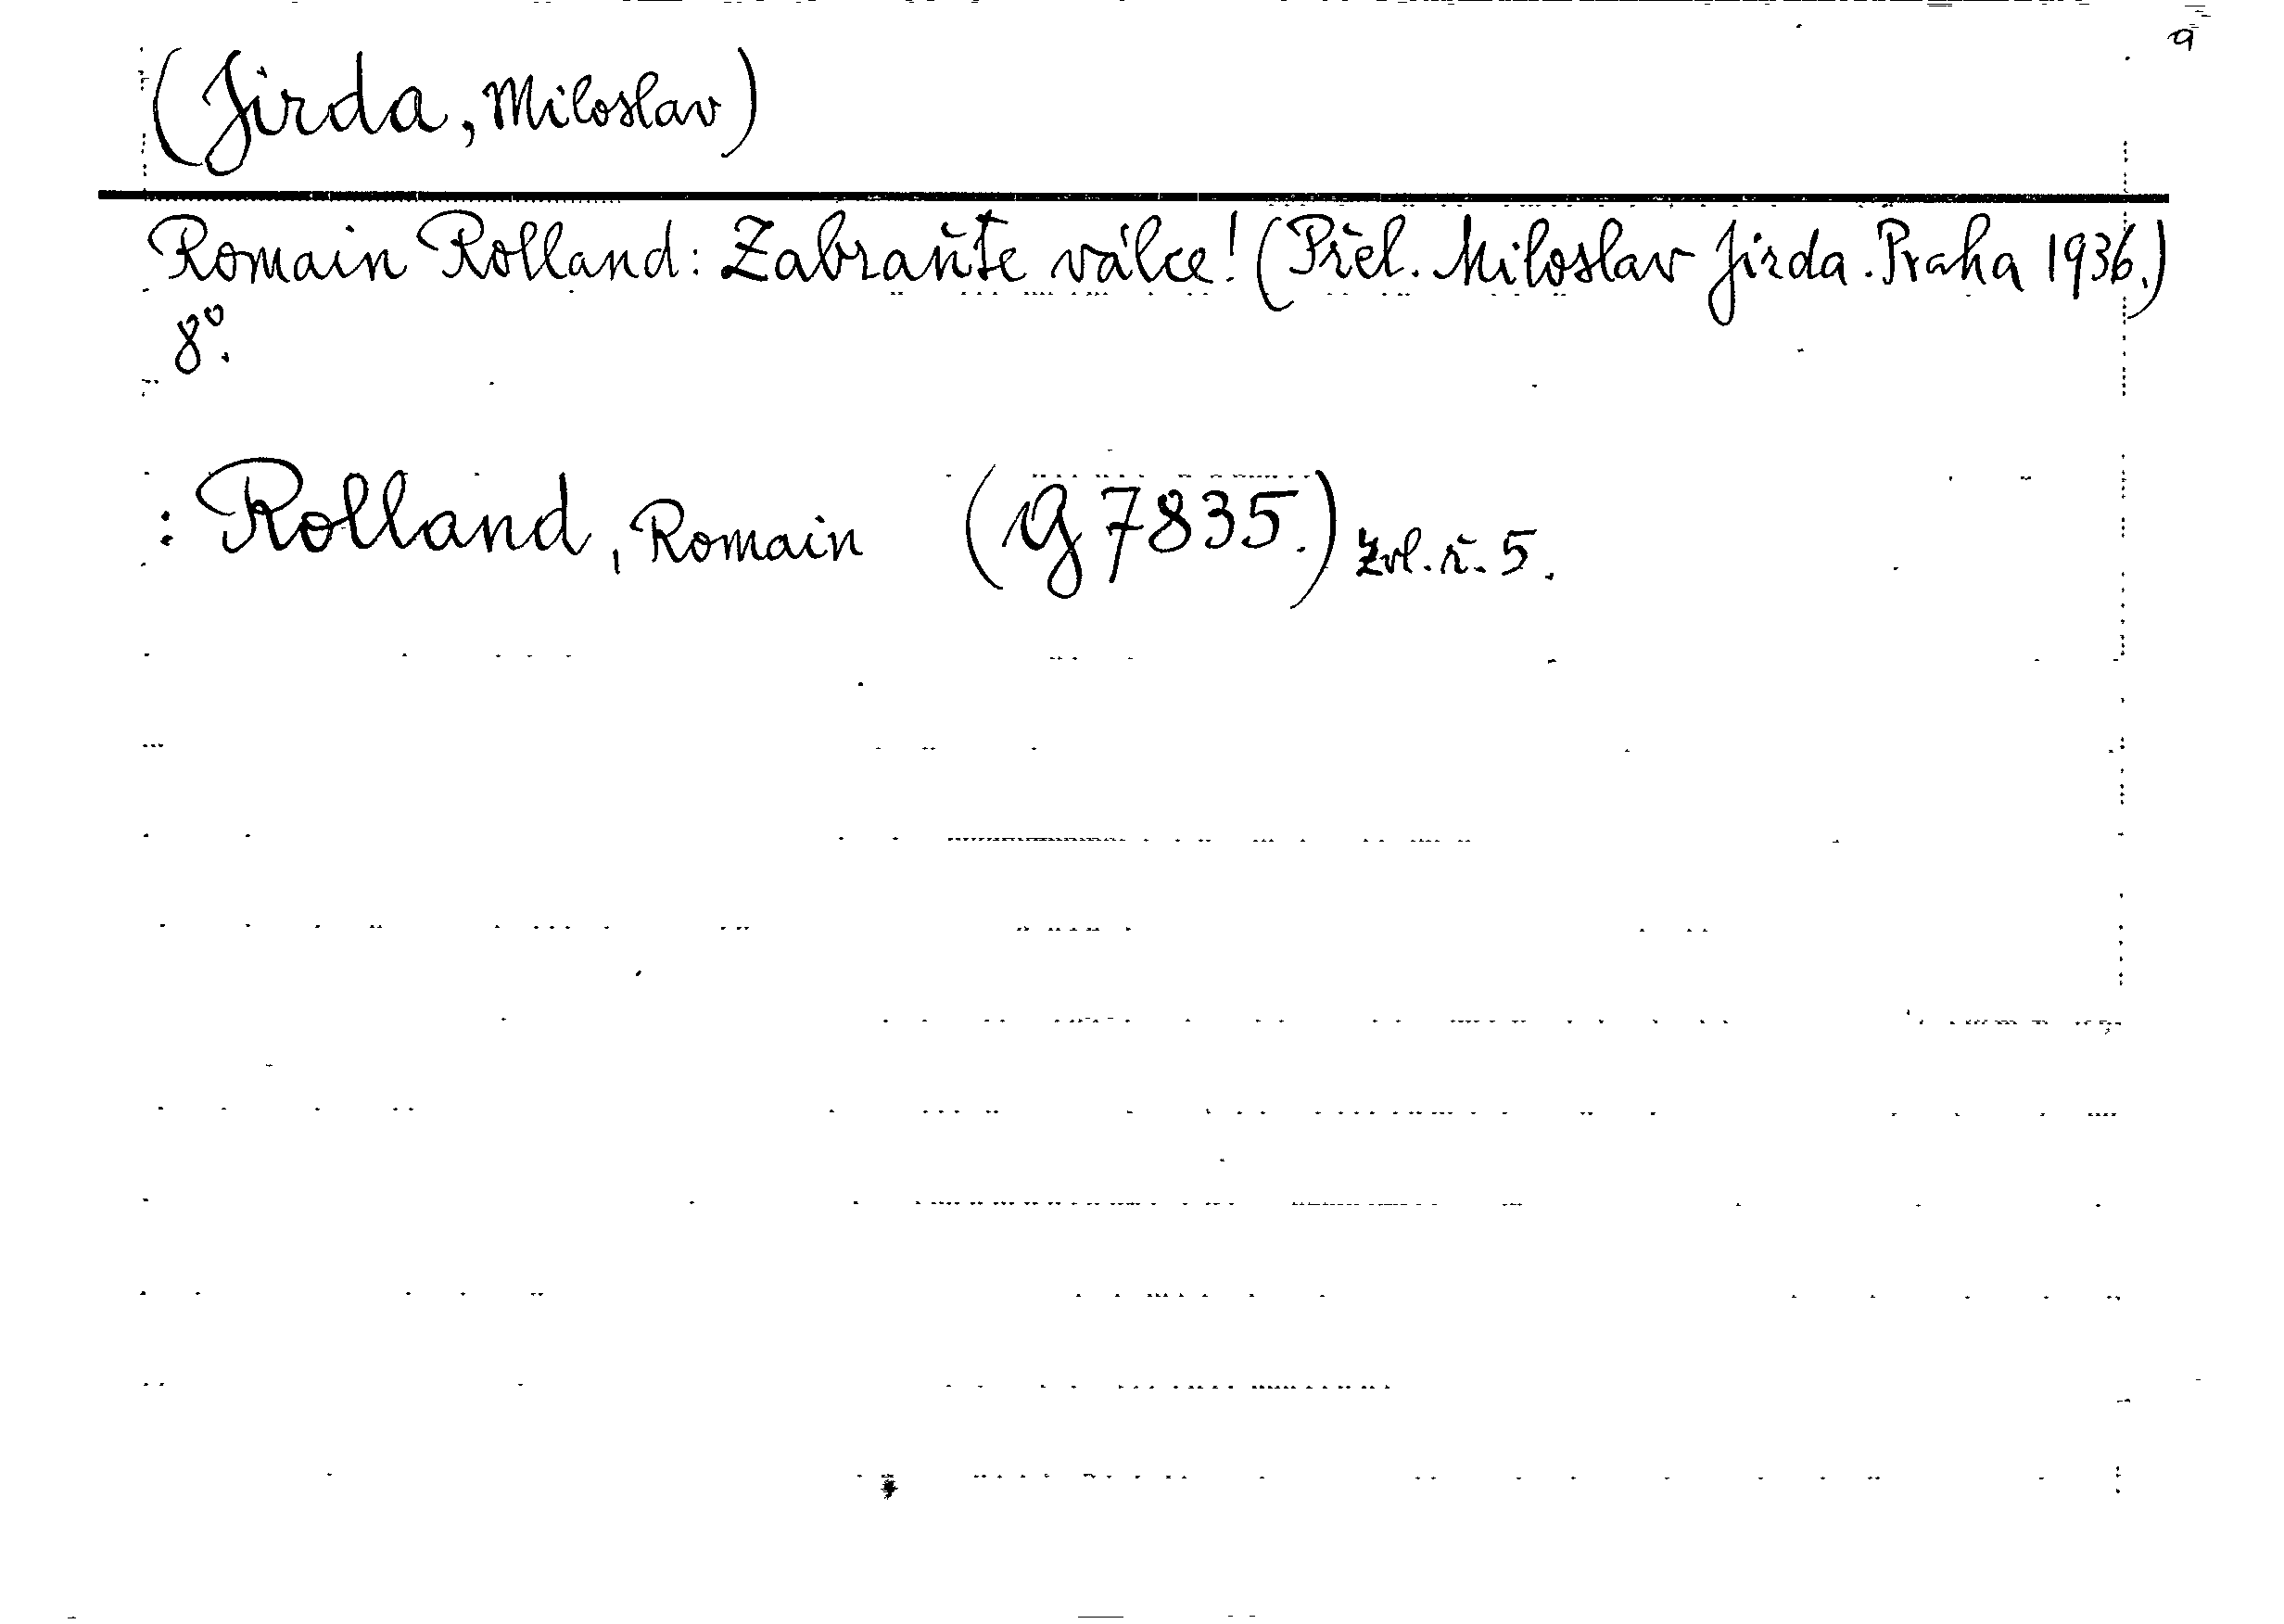 a
(Jirda, Miloslav)
Romain Rolland: Zabraňte válce! (Přel. Miloslav Jirda. Praha 1936.)
8°.
: Rolland, Romain (G 7835.) Zvl. ř. 5.